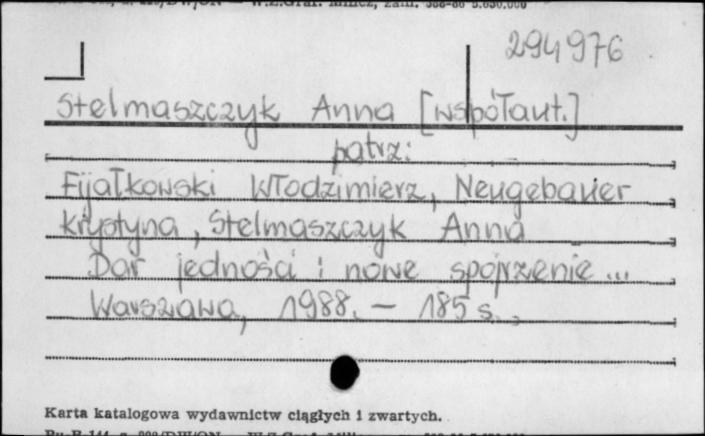 294976
Stelmaszczyk Anna [współaut.]
patrz:
Fijałkowski Włodzimierz, Neugebauer
Krystyna, Stelmaszczyk Anna
Dar jedności i nowe spojrzenie...
Warszawa, 1988. - 185 s.,
Karta katalogowa wydawnictw ciągłych i zwartych.